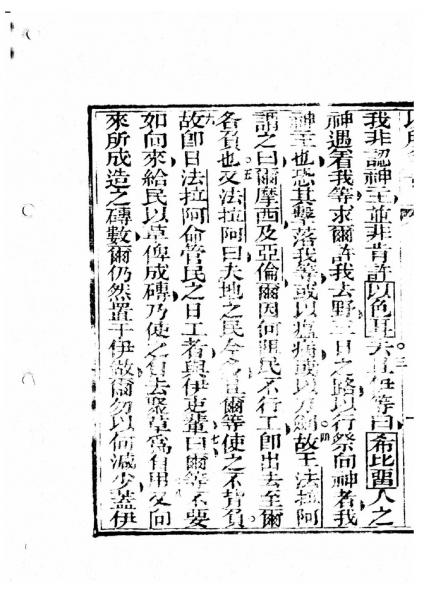 我非認神主並非肯許以色耳去且伊等曰希比畱人之
神遇着我等求爾許我去野三日之路以行祭向神者我
神主也恐其擊落我等或以瘟病或以刀劍故王法拉阿
謂之曰爾摩西及亞倫爾因何阻民不行工卽出去至爾
各負也又法拉阿曰夫地之民今多且爾等使之不背負
故卽日法拉阿命管民之日工者與伊吏輩曰爾等不要
如向來給民以草俾成磚乃使之自去聚草為自用又向
來所成造之磚數爾仍然置于伊故爾勿以何減少蓋伊